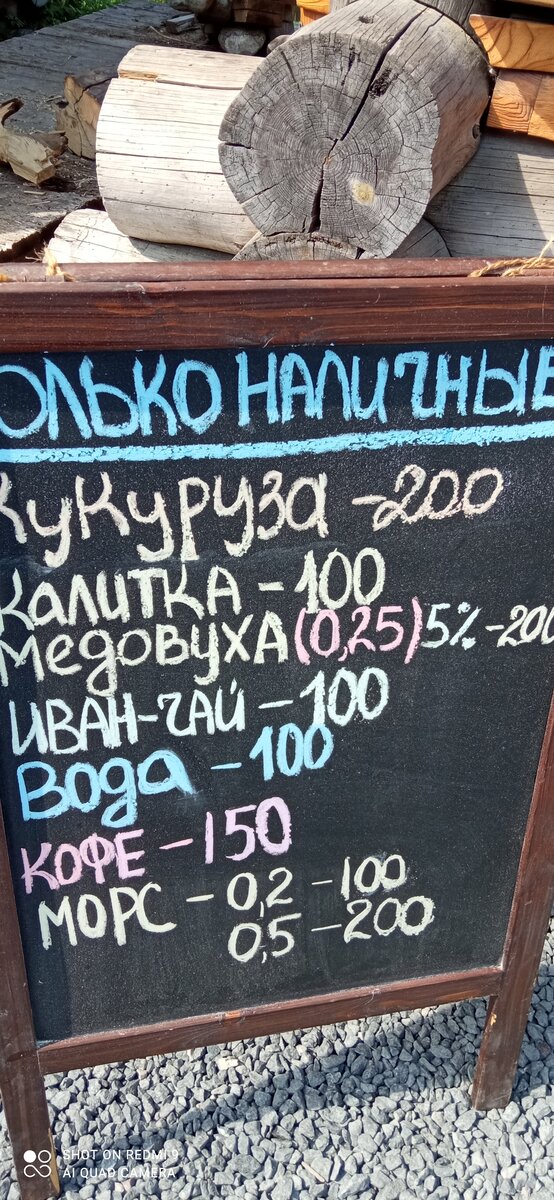 ОЛЬКО НАЛИЧНЫЕ
Кукуруза -200
Калитка - 100
Медовуха (0,25) 5% -200
Иван-чай - 100
Вода - 100
Кофе - 150
Морс - 0,2 - 100
0,5 - 200
SHOT ON REDMI 9
AI QUAD CAMERA